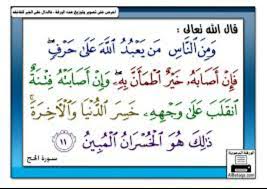 أحرص على تصوير وتوزيع هذه الورقة ، فالدال على الخير كفاعله
قال الله تعالى :
وَمِنَ النَّاسِ مَن يَعْبُدُ اللَّهَ عَلَىٰ حَرْفٍ ۖ
فَإِنْ أَصَابَهُ خَيْرٌ اطْمَأَنَّ بِهِ ۖ وَإِنْ أَصَابَتْهُ فِتْنَةٌ
انقَلَبَ عَلَىٰ وَجْهِهِ خَسِرَ الدُّنْيَا وَالْآخِرَةَ ۚ
ذَٰلِكَ هُوَ الْخُسْرَانُ الْمُبِينُ ١١
سورة الحج
الورقة الدعوية